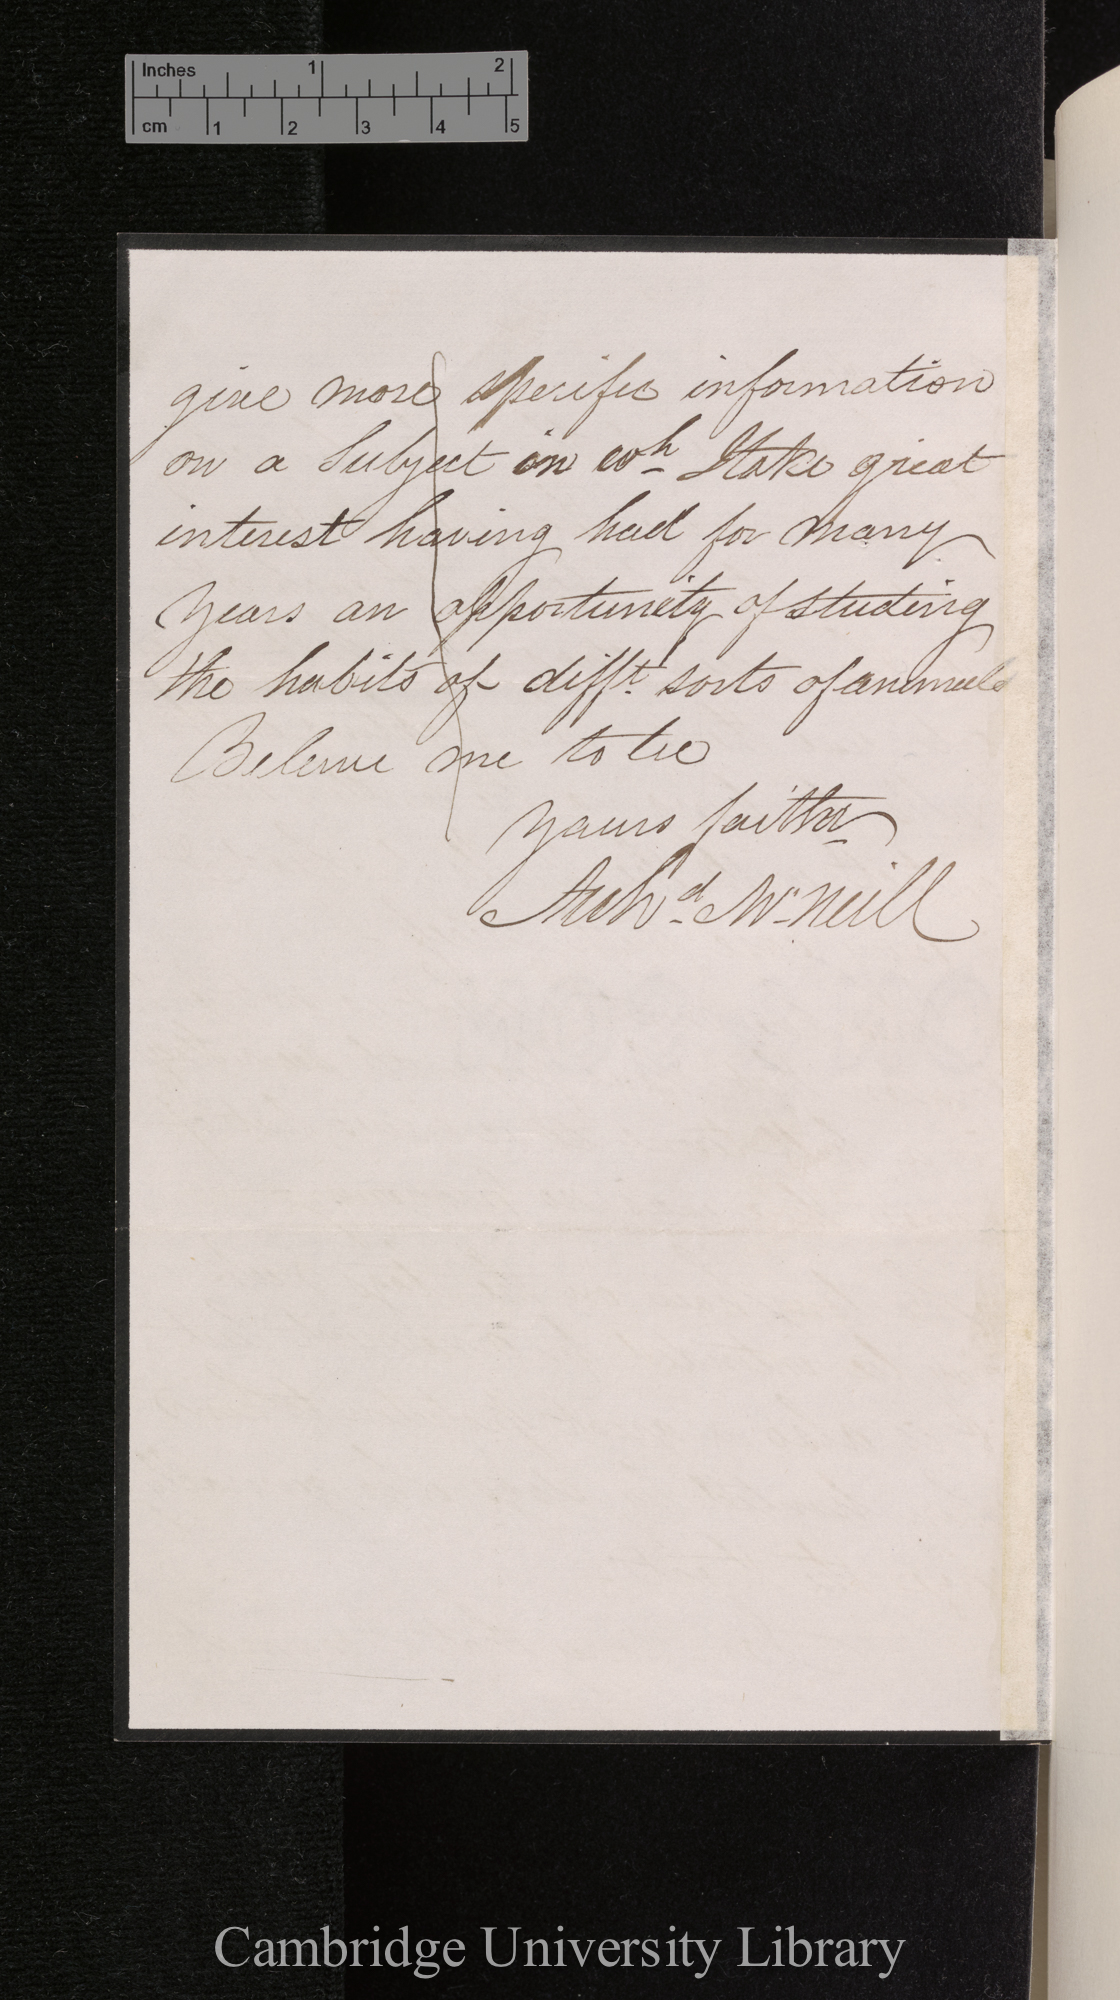 Inches 1 2
cm 1 2 3 4 5
give more specific information
on a Subject in wh I take great
interest having had for many
years an opportunity of studing
the habits of difft sorts of animals
Beleive me to be
yours faithy
Archd McNeill
Cambridge University Library